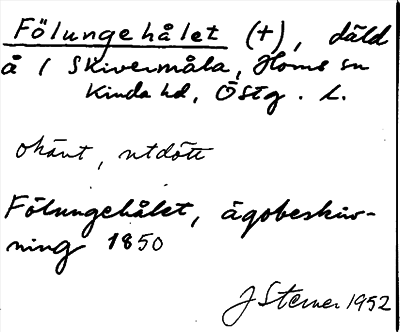 Fölungehålet (+), däld
å 1 Skivermåla, Horns sn
Kinda hd, Östg. L.
okänt, utdött
Fölungehålet, ägobeskriv-
ning 1850
J Sterner 1952